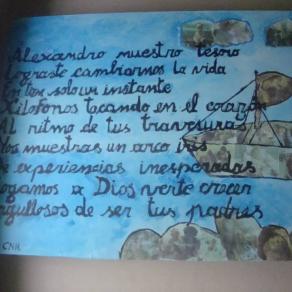 Alexandro nuestro tesoro
Lograste cambiarnos la vida
En tan solo un instante
Xilofonos tocando en el corazón
Al ritmo de tus travesuras
Nos muestras un arco iris
De experiencias inesperadas
Rogamos a Dios verte crecer
Orgullosos de ser tus padres
CNH